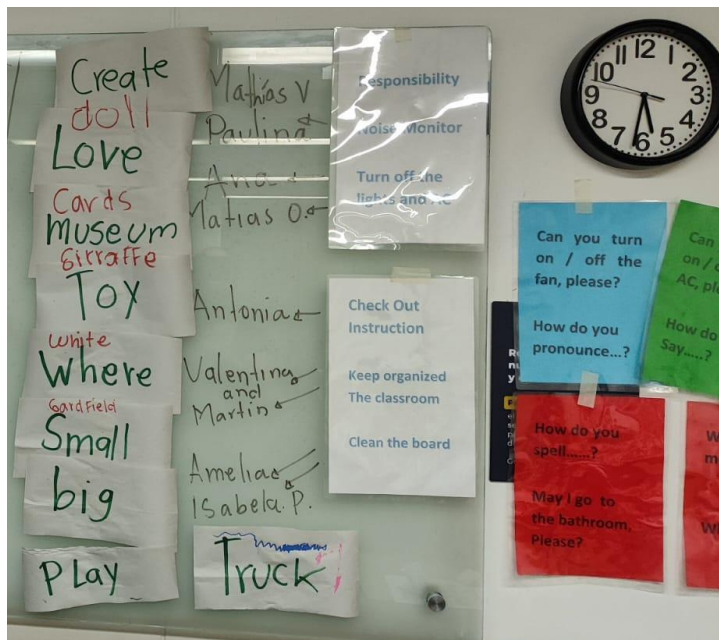 Create
doll
Love
Cards
museum
Girraffe
Toy
White
Where
GardField
Small
big
PLay
Mathías V
Paulina
Ana
Matias O.
Antonia
Valentina
and
Martin
Amelia
ISabela. P.
Truck
Responsibility
Noise Monitor
Turn off the
lights and AC
Check Out
Instruction
Keep organized
The classroom
Clean the board
12
1
2
3
4
5
6
7
8
9
10
11
Can you turn
on / off the
fan, please?
How do you
pronounce...?
Can
on /
AC,
How do
Say.....?
How do you
spell......?
May I go to
the bathroom,
Please?